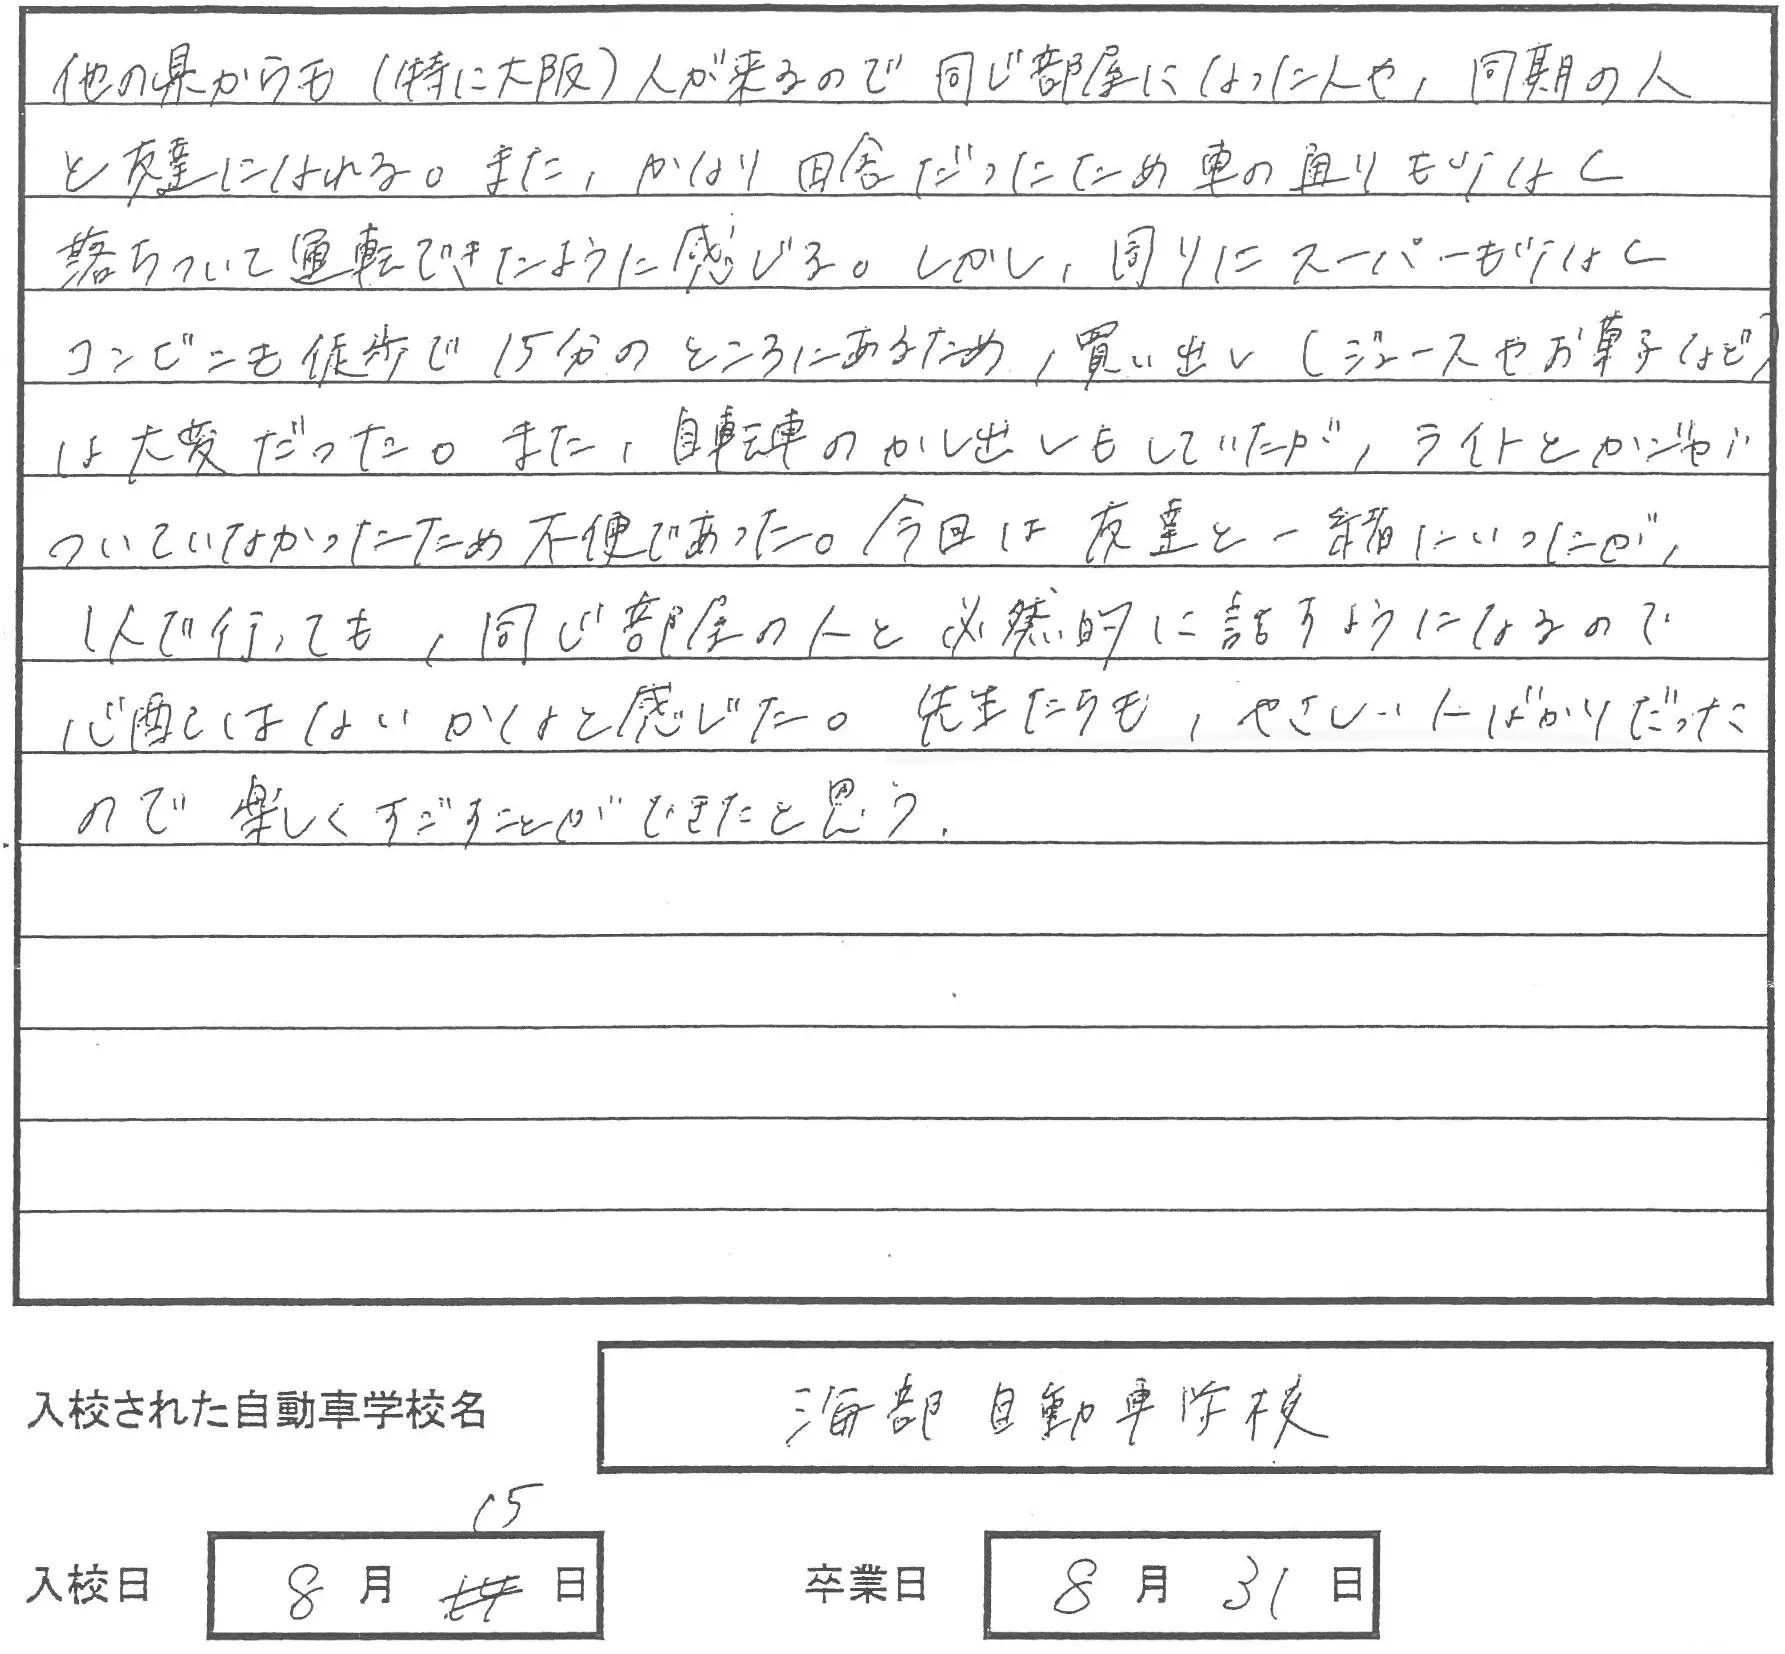 他の県からも(特に大阪)人が来るので同じ部屋になった人や,同期の人
と友達になれる。また,かなり田舎だったため車の通りも少なく
落ちついて運転できたように感じる。しかし,周りにスーパーも少なく
コンビニも徒歩で15分のところにあるため,買い出し(ジュースやお菓子など)
は大変だった。また,自転車のかし出しもしていたが,ライトとかごが
ついていなかったため不便であった。今回は友達と一緒にいったが,
1人で行っても,同じ部屋の人と必然的に話すようになるので
心配はないかなと感じた。先生たちも,やさしい人ばかりだった
ので楽しくすごすことができたと思う.
入校された自動車学校名 海部自動車学校
15
入校日 8月 日 卒業日 8月31日